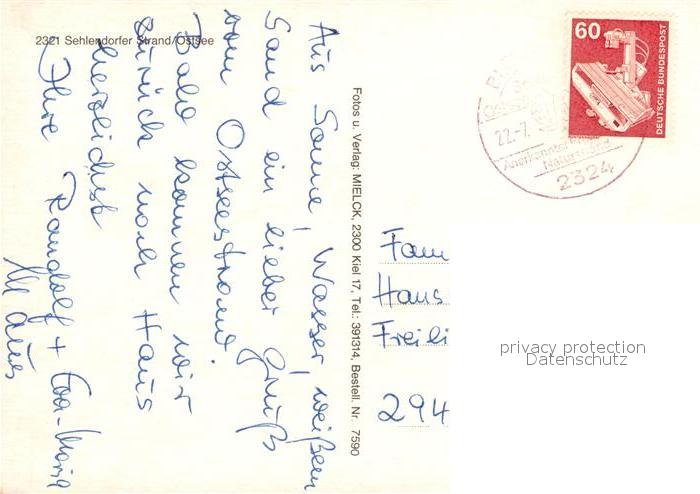 2321 Sehlendorfer Strand/Ostsee
Aus Sonne, Wasser, weißem
Sand ein lieber Gruß
vom Ostseestrand.
Bald kommen wir
zurück nach Haus
herzlichst
Ihre Randolf + Eva-Maria
Fotos u. Verlag: MIELCK, 2300 Kiel 17, Tel.: 391314, Bestell. Nr. 7590
60
DEUTSCHE BUNDESPOST
22.-7.
Anerkannter
2324
Fam
Haus
Freili
294
privacy protection
Datenschutz